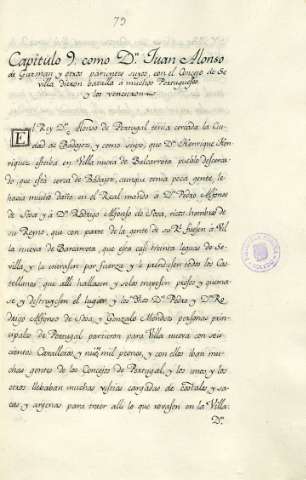 79
Capitulo 9, como Dn. Juan Alonso
de Guzman y otros parientes suyos, con el Concejo de Se
villa dieron batalla á muchos Portugueses
y los vencieron
El Rey Dn. Alonso de Portugal tenia cercada la Ciu
dad de Badajoz, y como supo, que Dn. Henrique Hen
riquez estaba en Villa nueva de Balcarrota pueblo descerca
do, que está cerca de Badajoz, aunque tenia poca gente, le
hacia mucho daño en el Real mandó á Dn. Pedro Alfonso
de Sosa, y á Dn. Rodrigo Alfonso de Sosa, ricos hombres de
su Reyno, que con parte de la gente de su Rl. fuesen á Vil
la nueva de Barcarrota, que esta casi treinta leguas de Se
villa, y la entrasen por fuerza y prendiesen todos los
Castellanos, que alli hallasen y se los trajesen presos y quema
se, y destruyesen el lugar; y los dhos Dn. Pedro, y Dn. Ro
drigo Alfonso de Sosa, y Gonzalo Mendez personas prin
cipales de Portugal partieron para Villa nueva con seis
cientos Cavalleros, y mil peones, y con ellos iban mu
chas gentes de los Concejos de Portugal, y los unos, y los
otros llebaban muchas vestias cargadas de costales, y sa
cas, y arganas para traer alli lo que robasen en la Villa.
Dn.